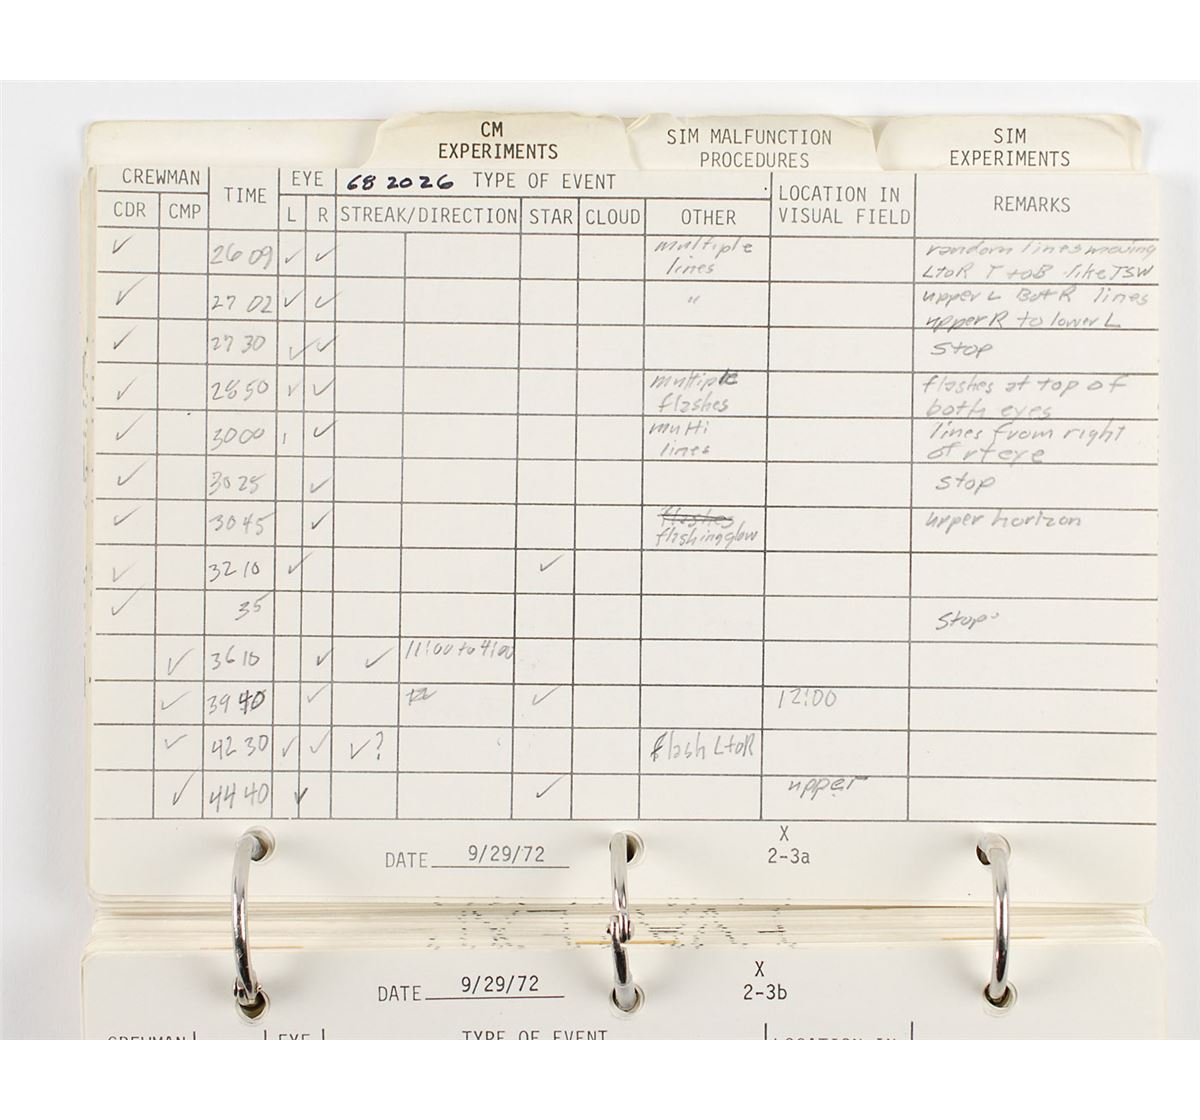 CM EXPERIMENTS
SIM MALFUNCTION PROCEDURES
SIM EXPERIMENTS
CREWMAN TIME EYE 682026 TYPE OF EVENT LOCATION IN VISUAL FIELD REMARKS
CDR CMP L R STREAK/DIRECTION STAR CLOUD OTHER
✓ 26 09 ✓ ✓ multiple lines random lines moving
LtoR T toB like TSW
✓ 27 02 ✓ ✓ " upper L Bot R lines
upper R to lower L
✓ 27 30 ✓ ✓ stop
✓ 28 50 ✓ ✓ multiple flashes flashes at top of
both eyes
✓ 30 00 ✓ multi lines lines from right
of rt eye
✓ 30 25 ✓ stop
✓ 30 45 ✓ flashes flashing glow upper horizon
✓ 32 10 ✓ ✓
✓ 35 stop
✓ 36 10 ✓ ✓ 11:00 to 4:00
✓ 39 40 ✓ ✓ 12:00
✓ 42 30 ✓ ✓ ✓? flash LtoR
✓ 44 40 ✓ ✓ upper
DATE 9/29/72 X
2-3a
DATE 9/29/72 X
2-3b
CREWMAN EYE TYPE OF EVENT LOCATION IN